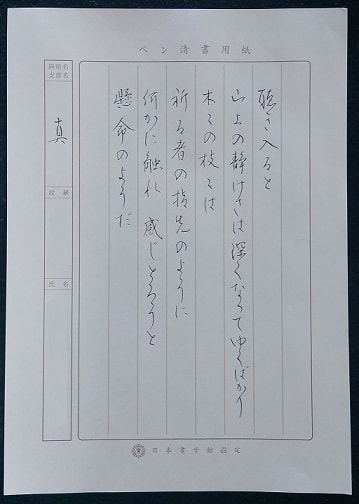 ペン清書用紙
聴き入ると
山上の静けさは深くなってゆくばかり
木々の枝々は
祈る者の指先のように
何かに触れ 感じとろうと
懸命のようだ
支部名
真
段級
氏名
日本書学館指定